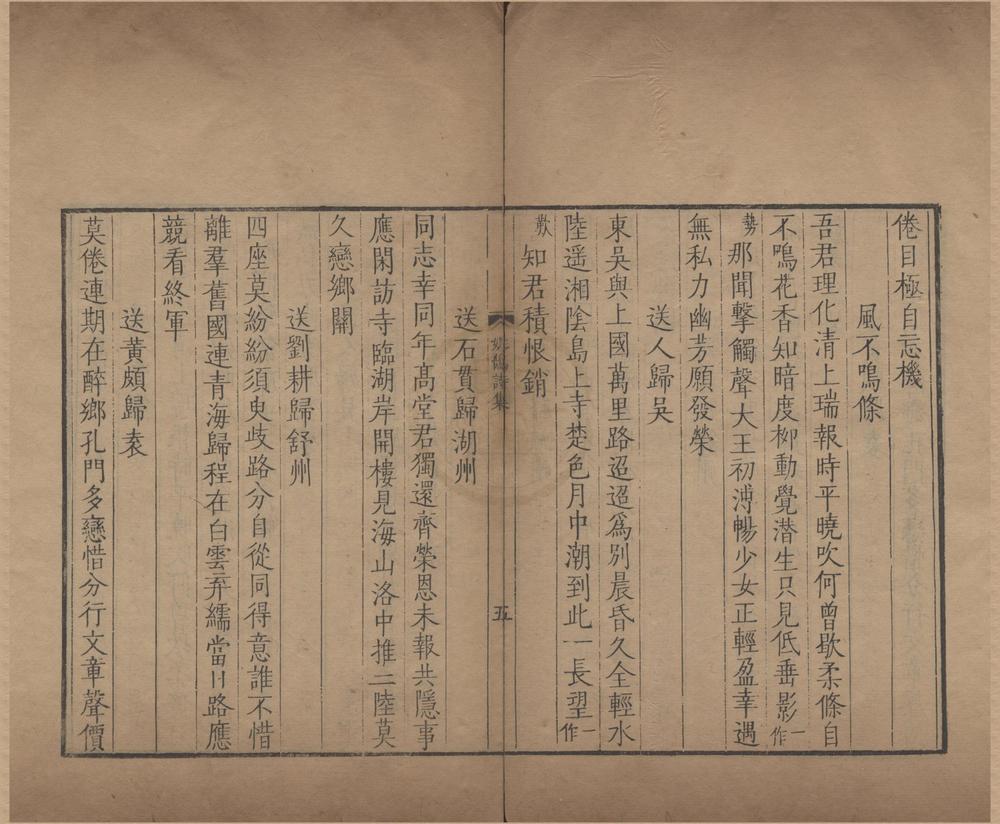 倦目極自忘機
風不鳴條
吾君理化清上瑞報時平曉吹何曾歇柔條自
不鳴花香知暗度柳動覺潛生只見低垂影一作
勢那聞擊觸聲大王初溥暢少女正輕盈幸遇
無私力幽芳願發榮
送人歸吳
東吳與上國萬里路迢迢爲別晨昏久全輕水
陸遥湘陰島上寺楚色月中潮到此一長望一作
歎知君積恨銷
姚鵠詩集
五
送石貫歸湖州
同志幸同年高堂君獨還齊榮恩未報共隱事
應閑訪寺臨湖岸開樓見海山洛中推二陸莫
久戀鄉關
送劉耕歸舒州
四座莫紛紛須臾歧路分自從同得意誰不惜
離羣舊國連青海歸程在白雲弃繻當日路應
競看終軍
送黃頗歸袁
莫倦連期在醉鄉孔門多戀惜分行文章聲價